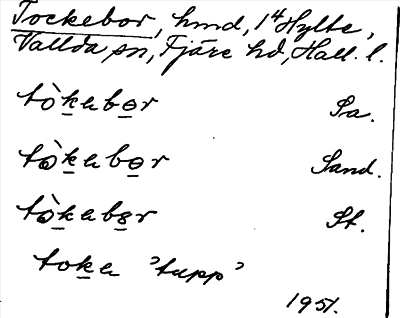 Tockebor, hmd, 1⁴ Hylte,
Vallda sn, Fjäre hd, Hall. l.
tòkabor Pa.
tòkabor Sand.
tòkabor St.
toka 'tupp'
1951.